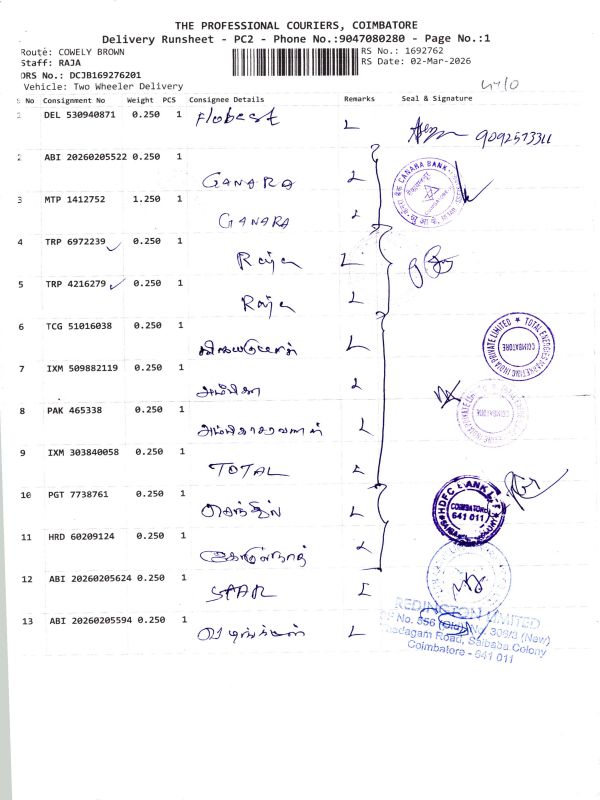 THE PROFESSIONAL COURIERS, COIMBATORE
Delivery Runsheet - PC2 - Phone No.:9047080280 - Page No.:1
Route: COWELY BROWN
RS No.: 1692762
Staff: RAJA
RS Date: 02-Mar-2026
DRS No.: DCJB169276201
Vehicle: Two Wheeler Delivery
S No Consignment No Weight PCS Consignee Details Remarks Seal & Signature
1 DEL 530940871 0.250 1 Flobest L 9092573311
2 ABI 20260205522 0.250 1
GANARA L
CANARA BANK
3 MTP 1412752 1.250 1
GANARA L
4 TRP 6972239 0.250 1
Raja L
5 TRP 4216279 0.250 1
Raja L
6 TCG 51016038 0.250 1
L
TOTAL ENERGIES MARKETING INDIA PRIVATE LIMITED
COIMBATORE
7 IXM 509882119 0.250 1
அம்பிகா L
8 PAK 465338 0.250 1
L
9 IXM 303840058 0.250 1
TOTAL L
10 PGT 7738761 0.250 1
செந்தில் L
HDFC BANK LTD
COIMBATORE
641 011
11 HRD 60209124 0.250 1
L
12 ABI 20260205624 0.250 1
STAR L
REDINGTON LIMITED
SF No. 356 (Old), No. 306/3 (New)
Road, Saibaba Colony
Coimbatore - 641 011
13 ABI 20260205594 0.250 1
L